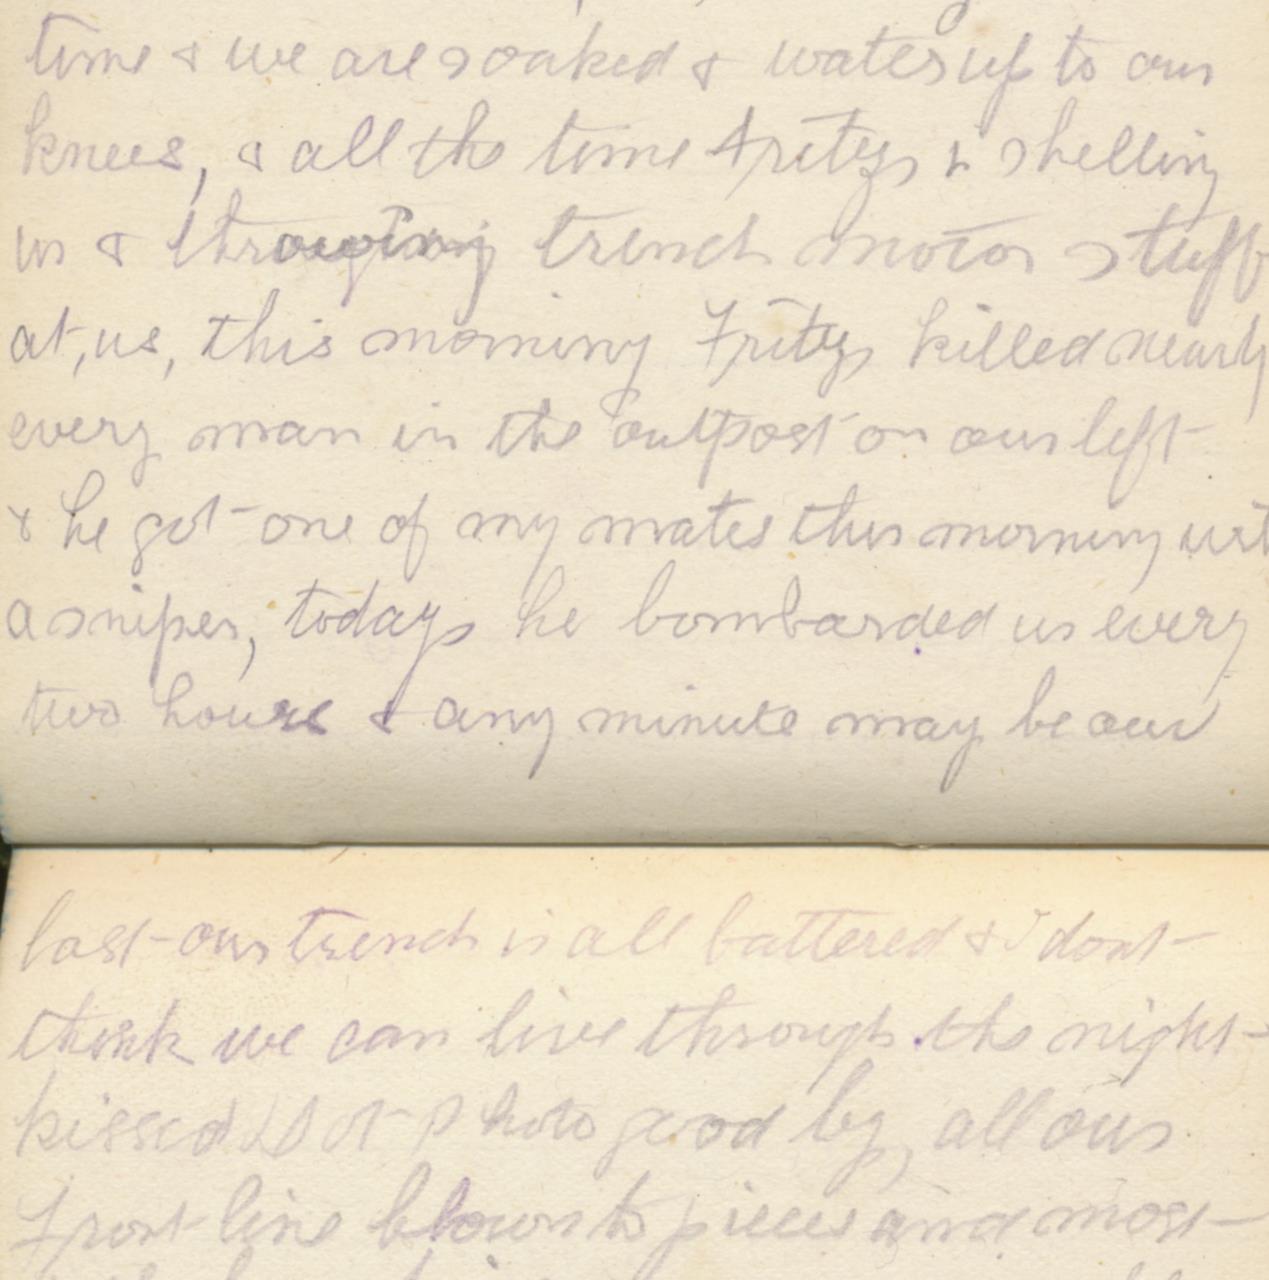 time & we are soaked & water up to our
knees, & all the time Fritzs is shelling
us & throwing trench motor stuff
at, us, this morning Fritzs killed nearly
every man in the outpost on our left
& he got one of my mates this morning wit
a sniper, todays he bombarded us every
two hours & any minute may be our
last our trench is all battered & I dont
think we can live through the night
kissed Dot Photo good by, all our
Front line blown to pieces and most